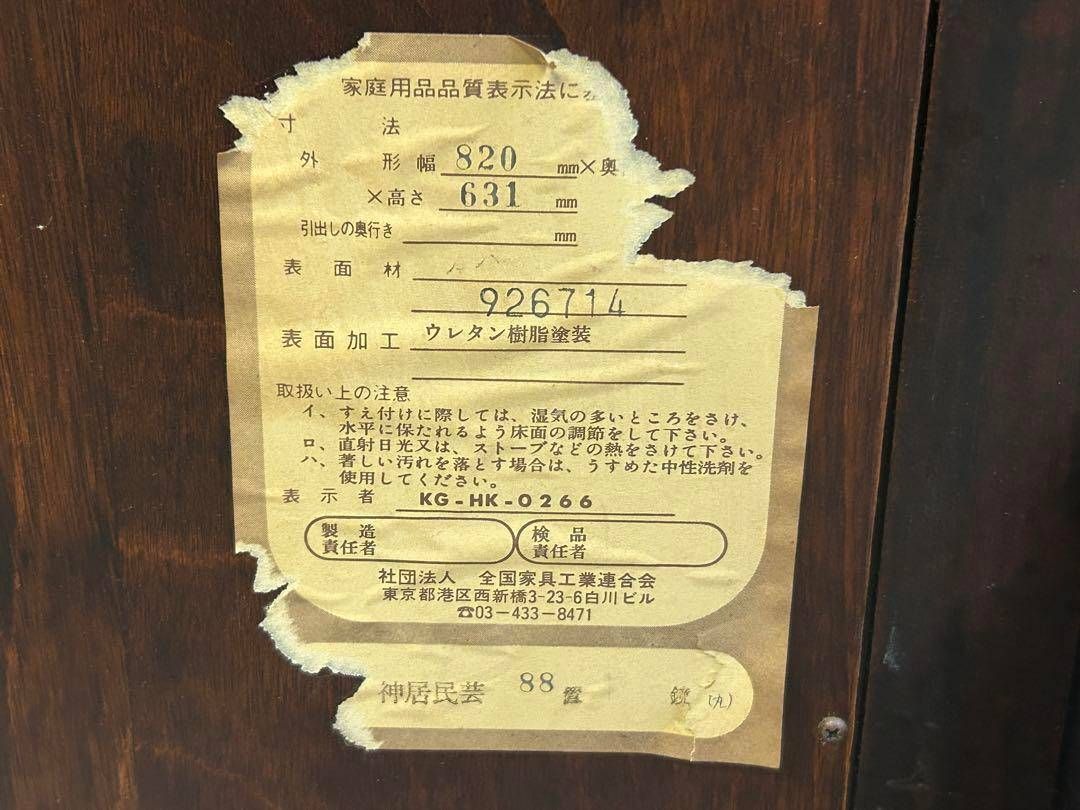 家庭用品品質表示法に
寸法
外形幅 820 mm×奥
×高さ 631 mm
引出しの奥行き mm
表面材
926714
表面加工 ウレタン樹脂塗装
取扱い上の注意
イ、すえ付けに際しては、湿気の多いところをさけ、
水平に保たれるよう床面の調節をして下さい。
ロ、直射日光又は、ストーブなどの熱をさけて下さい。
ハ、著しい汚れを落とす場合は、うすめた中性洗剤を
使用してください。
表示者 KG-HK-0266
製造責任者 検品責任者
社団法人 全国家具工業連合会
東京都港区西新橋3-23-6白川ビル
☎03-433-8471
神居民芸 88